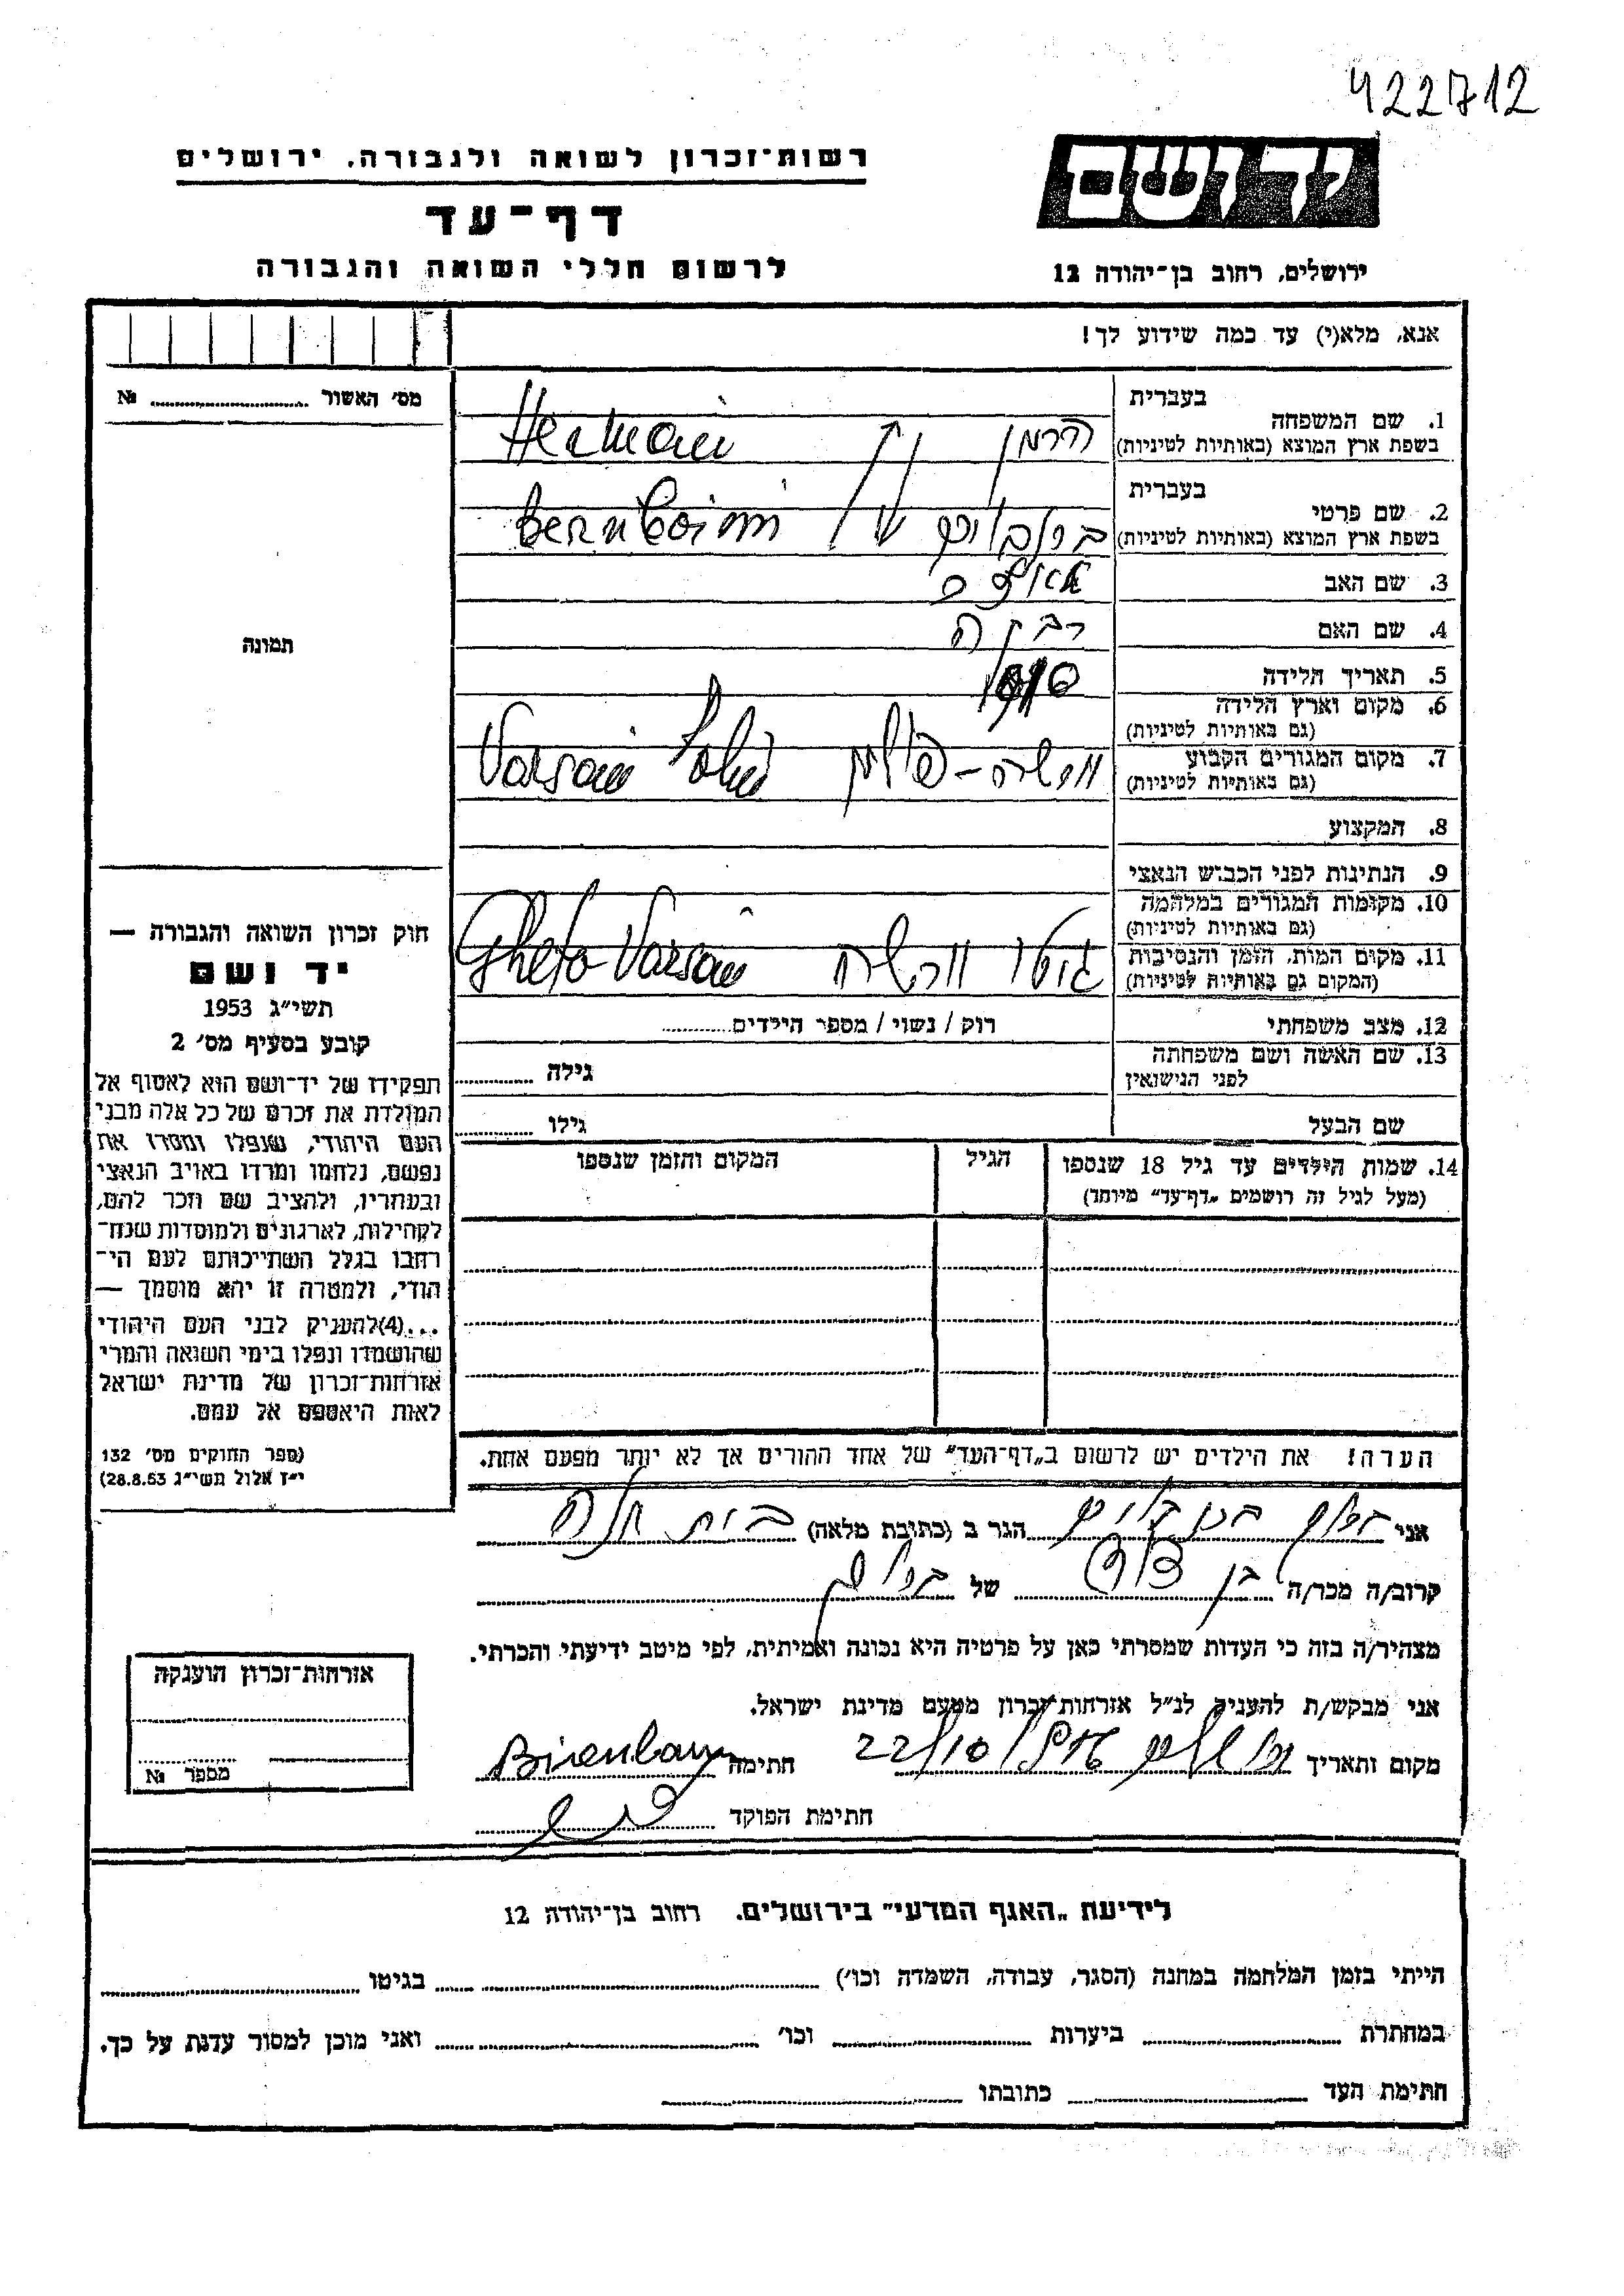 422712
רשות־זכרון לשואה ולגבורה, ירושלים
יד ושם
דף־עד
לרשום חללי השואה והגבורה
ירושלים, רחוב בן־יהודה 12
אנא, מלא(י) עד כמה שידוע לך!
מס' האשור № 
1. שם המשפחה
בעברית
בשפת ארץ המוצא (באותיות לטיניות)
הרמן Herman
2. שם פרטי
בעברית
בשפת ארץ המוצא (באותיות לטיניות)
3. שם האב
4. שם האם רבקה
5. תאריך הלידה
6. מקום וארץ הלידה
(גם באותיות לטיניות)
7. מקום המגורים הקבוע
(גם באותיות לטיניות)
וורשה - פולין
8. המקצוע
9. הנתינות לפני הכבוש הנאצי
10. מקומות המגורים במלחמה
(גם באותיות לטיניות)
11. מקום המות, הזמן והנסיבות
(המקום גם באותיות לטיניות)
גיטו וורשה Gheto
12. מצב משפחתי רוק / נשוי / מספר הילדים
13. שם האשה ושם משפחתה
לפני הנישואין
גילה
שם הבעל גילו
14. שמות הילדים עד גיל 18 שנספו הגיל המקום והזמן שנספו
(מעל לגיל זה רושמים "דף־עד" מיוחד)
הערה! את הילדים יש לרשום ב"דף־העד" של אחד ההורים אך לא יותר מפעם אחת.
תמונה
חוק זכרון השואה והגבורה —
יד ושם
תשי"ג 1953
קובע בסעיף מס' 2
תפקידו של יד־ושם הוא לאסוף אל
המולדת את זכרם של כל אלה מבני
העם היהודי, שנפלו ומסרו את
נפשם, נלחמו ומרדו באויב הנאצי
ובעוזריו, ולהציב שם וזכר להם,
לקהילות, לארגונים ולמוסדות שנח־
רבו בגלל השתייכותם לעם הי־
הודי, ולמטרה זו יהא מוסמך —
...(4) להעניק לבני העם היהודי
שהושמדו ונפלו בימי השואה והמרי
אזרחות־זכרון של מדינת ישראל
לאות היאספם אל עמם.
(ספר החוקים מס' 132
י"ז אלול תשי"ג 28.8.53)
אני הגר ב (כתובת מלאה)
קרוב/ה מכר/ה בן דוד של
מצהיר/ה בזה כי העדות שמסרתי כאן על פרטיה היא נכונה ואמיתית, לפי מיטב ידיעתי והכרתי.
אני מבקש/ת להעניק לנ"ל אזרחות־זכרון מטעם מדינת ישראל.
מקום ותאריך 22/10 חתימה
חתימת הפוקד
אזרחות־זכרון הוענקה
מספר №
לידיעת "האגף המדעי" בירושלים. רחוב בן־יהודה 12
הייתי בזמן המלחמה במחנה (הסגר, עבודה, השמדה וכו') בגיטו
במחתרת ביערות וכו' ואני מוכן למסור עדות על כך.
חתימת העד כתובתו